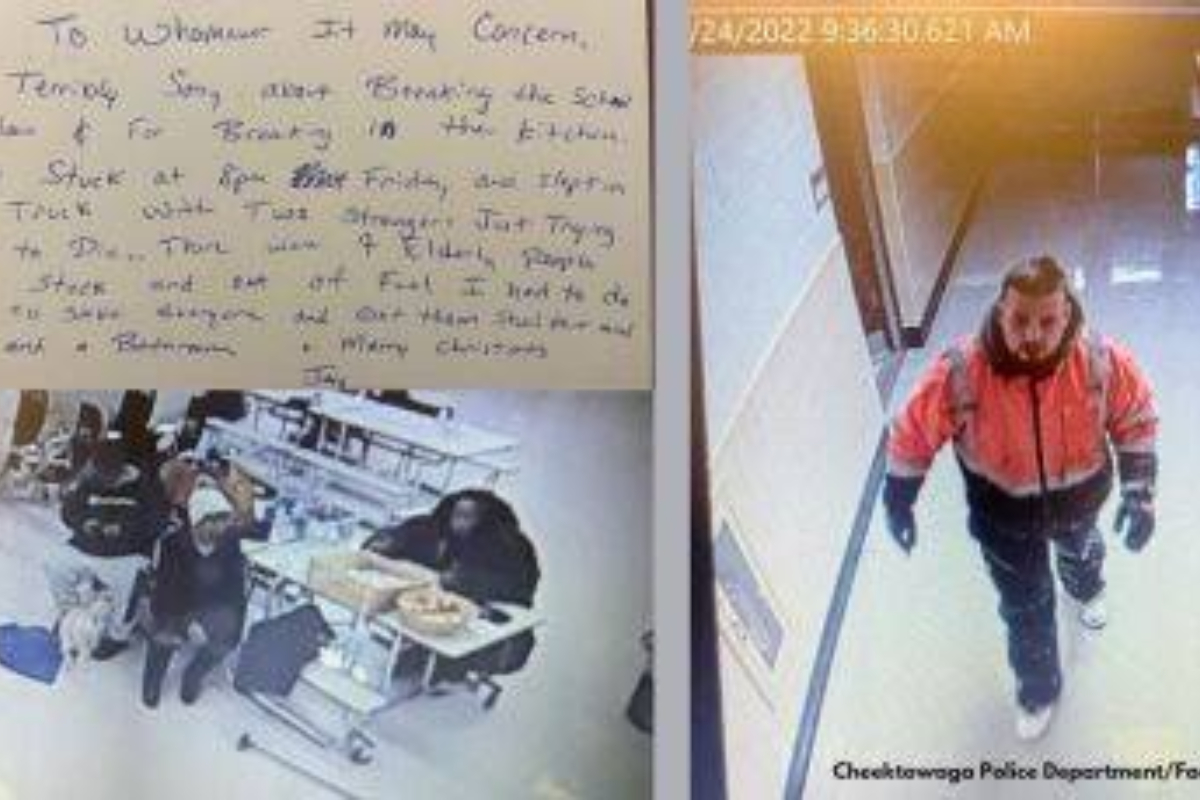 To Whomever It May Concern,
Terribly Sorry about Breaking the School
& For Breaking in the Kitchen.
Stuck at 8pm Friday and slept in
Truck with Two strangers Just Trying
to Die.. There were 7 Elderly People
Stuck and out of Fuel I had to do
to save everyone and get them shelter and
and a Bathroom. Merry Christmas
Jay
/24/2022 9:36:30.621 AM
Cheektowaga Police Department/Fac